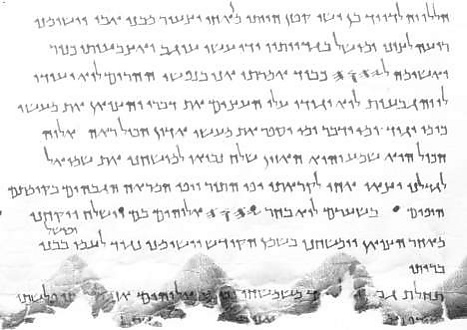 הללויה לדויד בן ישי קטן הייתי מאחי וצעיר מבני אבי וישימני
רועה לצונו ומושל בגדיותיו ידי עשו עוגב ואצבעותי כנור
ואשימה ל𐤉𐤄𐤅𐤄 כבוד אמרתי אני בנפשי ההרים לוא יעידו
לו והגבעות לוא יגידו עלו העצים את דברי והצואן את מעשי
כי מי יגיד ומי ידבר ומי יספר את מעשי אדון הכול ראה אלוה
הכול הוא שמע והוא האזין שלח נביאו למושחני את שמואל
לגדלני יצאו אחי לקראתו יפי התור ויפי המראה הגבהים בקומתם
היפים בשערם לוא בחר 𐤉𐤄𐤅𐤄 אלוהים בם וישלח ויקחני
ומושל
מאחר הצואן וימשחני בשמן הקודש וישימני נגיד לעמו בבני
בריתו
תחלת משמשחו אלוהים פלשתי